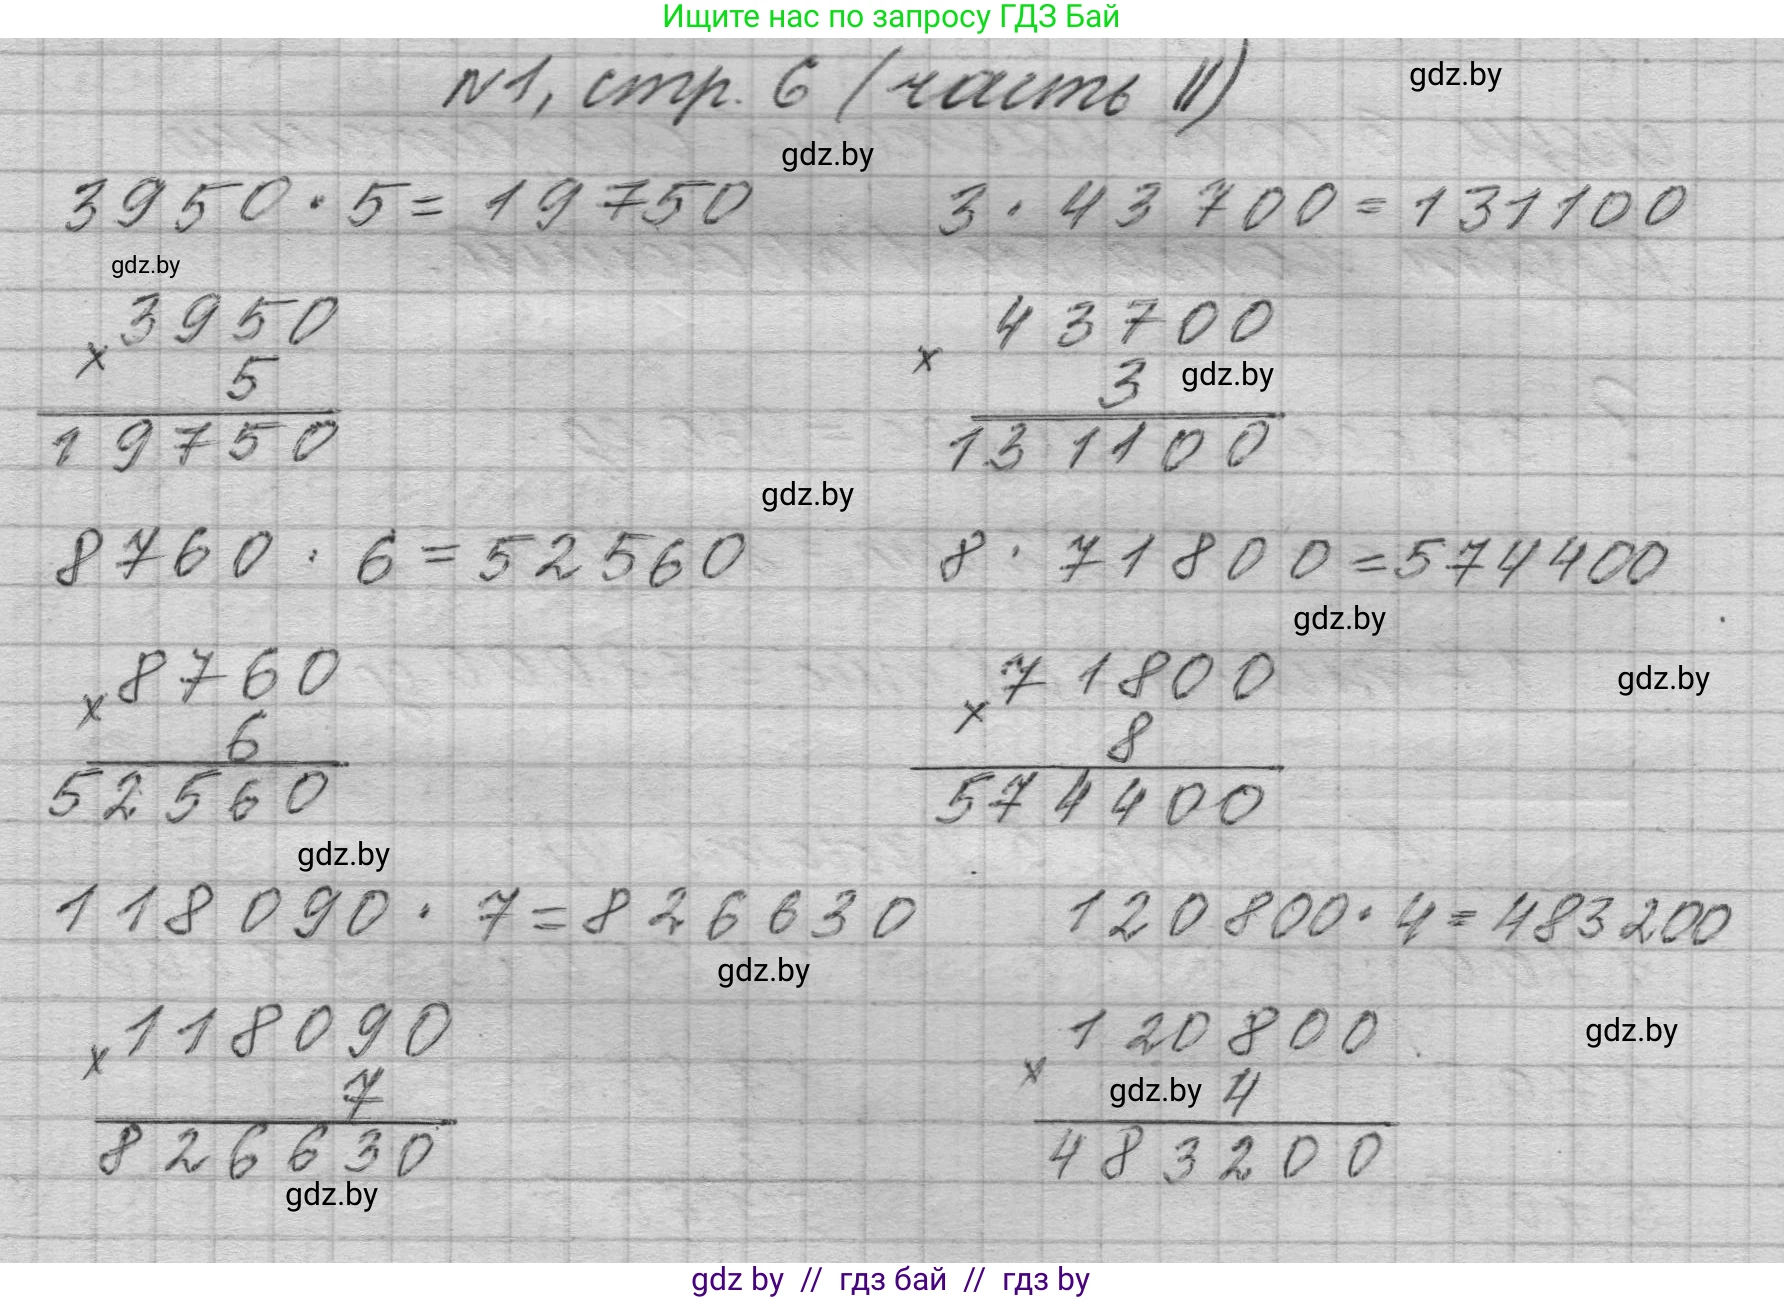 Ищите нас по запросу ГДЗ Бай
№1, стр. 6 (часть II)
gdz.by
gdz.by
3950 · 5 = 19750
3 · 43700 = 131100
gdz.by
× 3950
5
19750
× 43700
3 gdz.by
131100
gdz.by
8760 · 6 = 52560
8 · 71800 = 574400
gdz.by
gdz.by
× 8760
6
52560
× 71800
8
574400
gdz.by
118090 · 7 = 826630
120800 · 4 = 483200
gdz.by
× 118090
7
826630
gdz.by
× 120800
gdz.by 4
483200
gdz.by
gdz by // гдз бай // гдз by